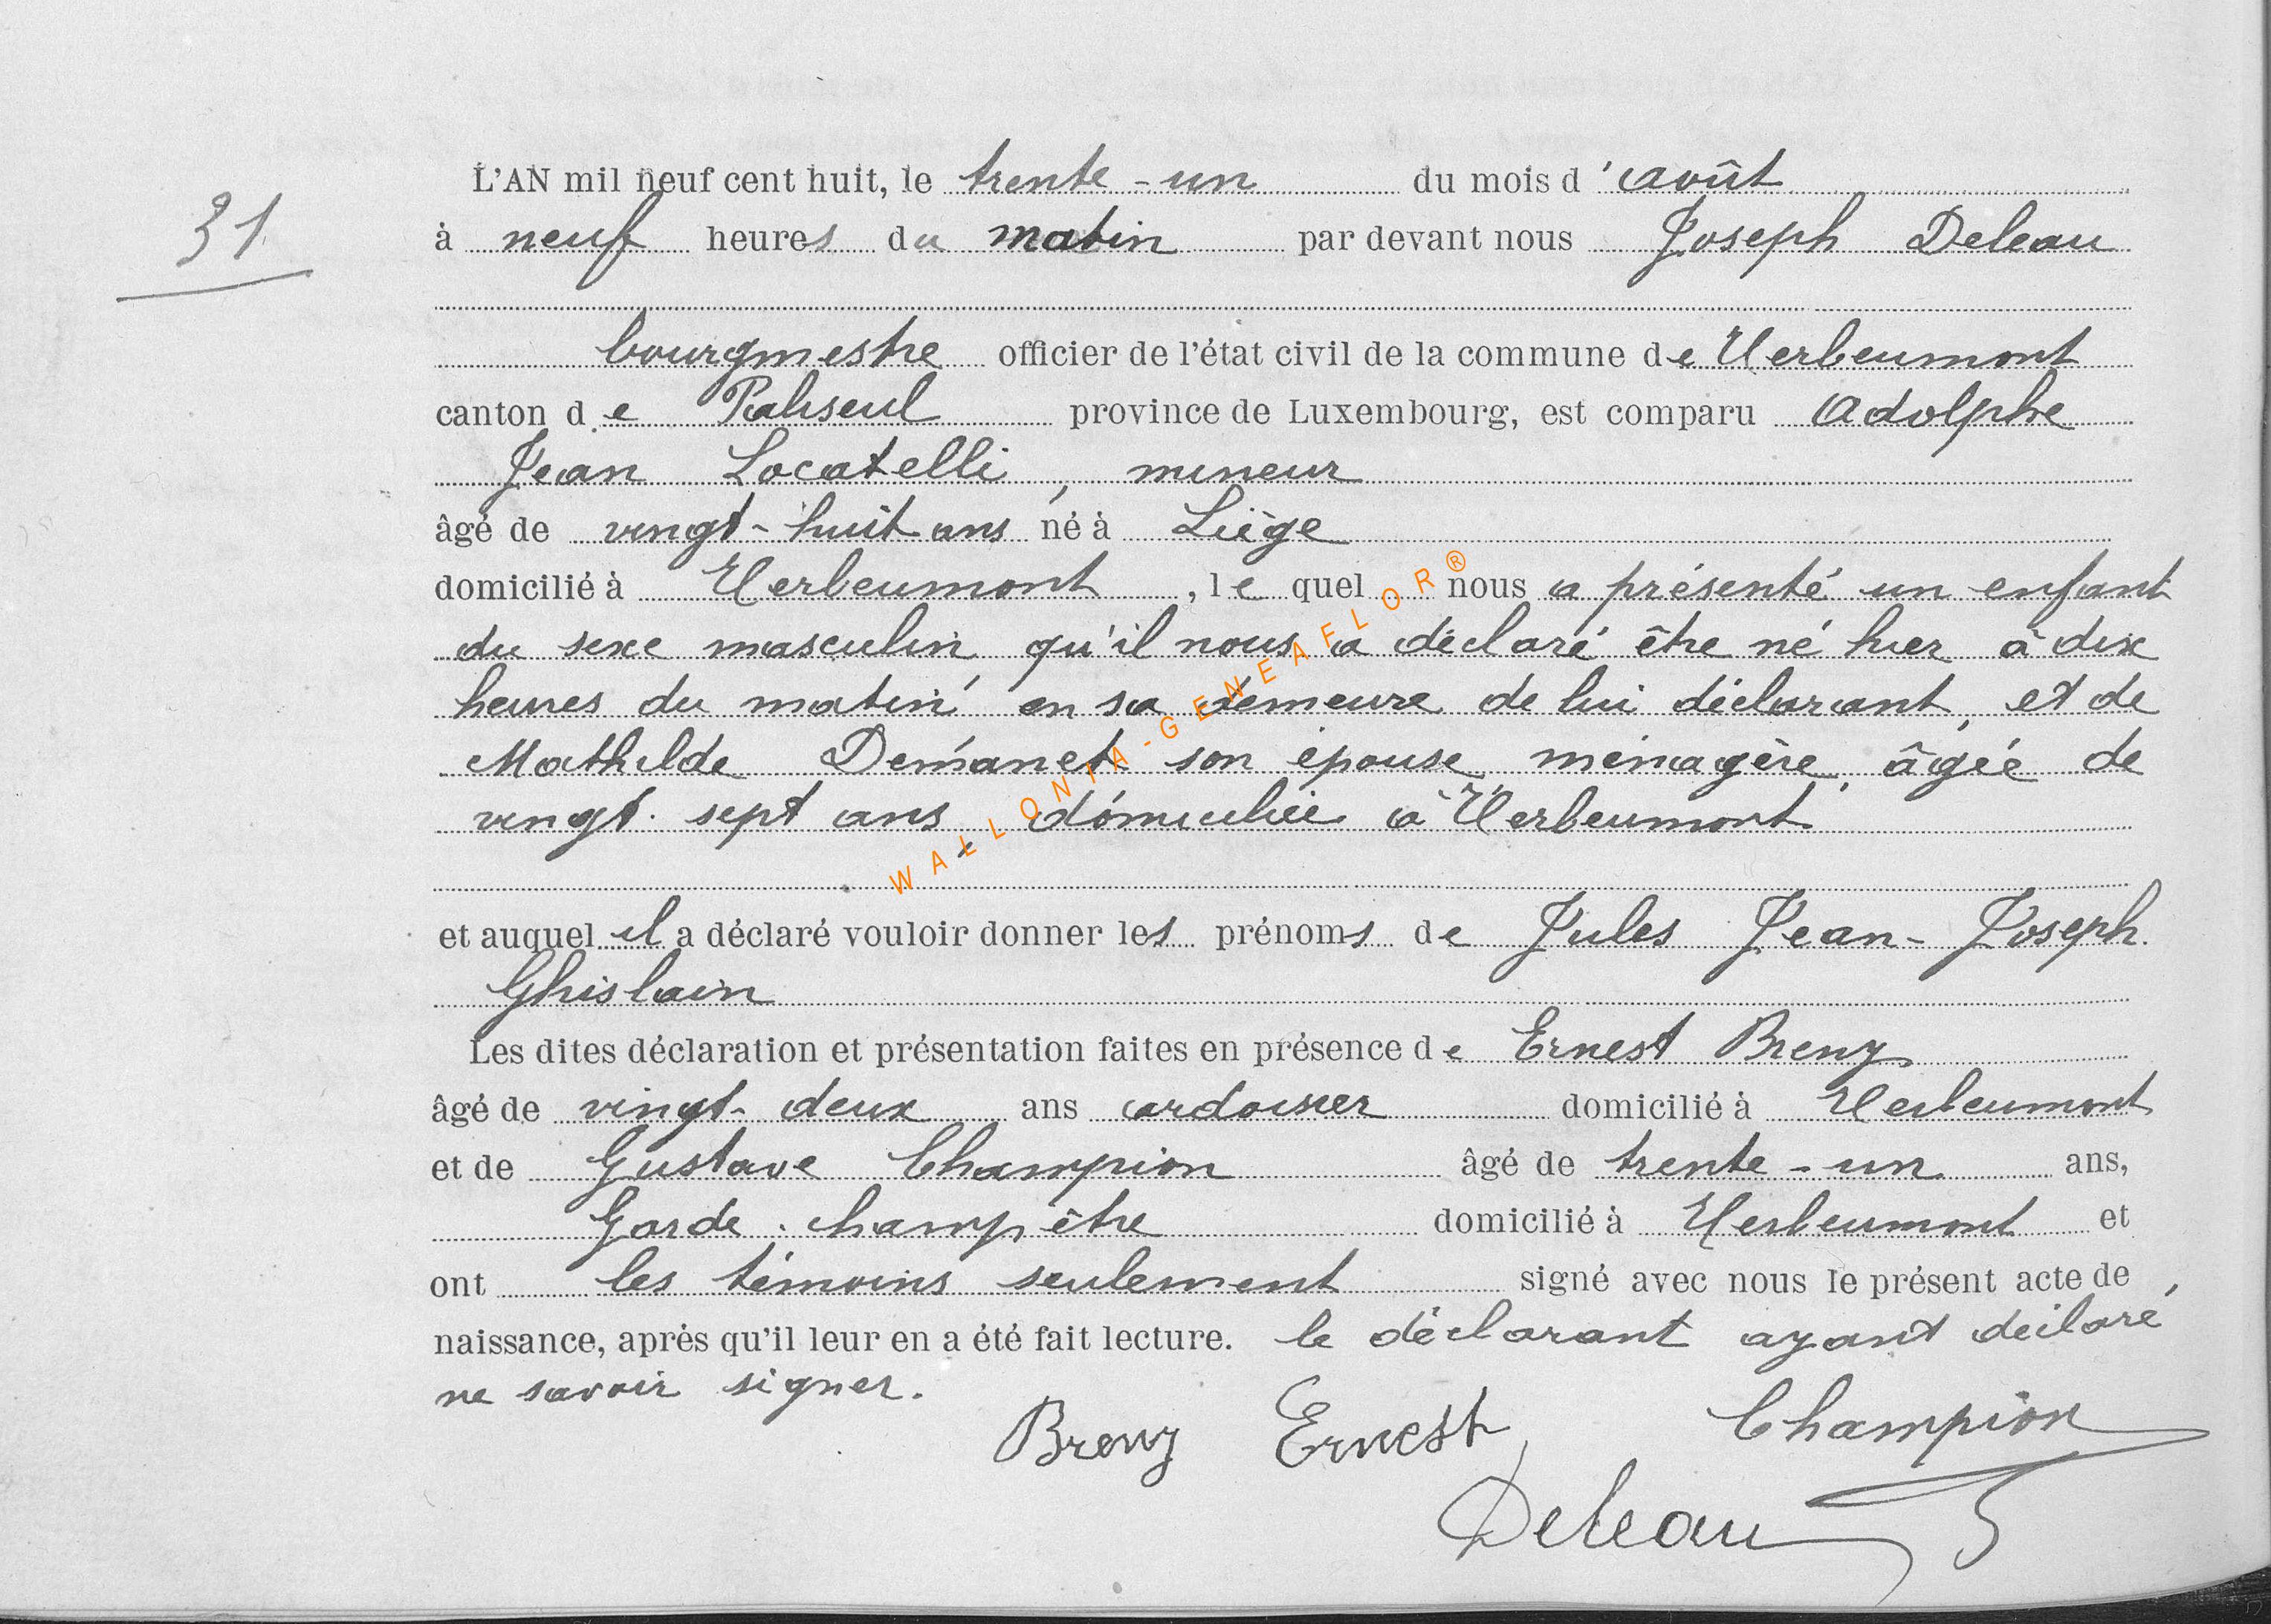 31
L'AN mil neuf cent huit, le trente-un du mois d'août
à neuf heures du matin par devant nous Joseph Deleau
bourgmestre officier de l'état civil de la commune de Herbeumont
canton de Paliseul province de Luxembourg, est comparu Adolphe
Jean Locatelli, mineur
âgé de vingt-huit ans né à Liège
domicilié à Herbeumont, lequel nous a présenté un enfant
du sexe masculin qu'il nous a déclaré être né hier à dix
heures du matin en sa demeure de lui déclarant, et de
Mathilde Demanet son épouse, ménagère, âgée de
vingt-sept ans, domiciliée à Herbeumont
et auquel il a déclaré vouloir donner les prénoms de Jules Jean-Joseph
Ghislain
Les dites déclaration et présentation faites en présence de Ernest Breny
âgé de vingt-deux ans ardoisier domicilié à Herbeumont
et de Gustave Champion âgé de trente-un ans,
Garde-champêtre domicilié à Herbeumont et
ont les témoins seulement signé avec nous le présent acte de
naissance, après qu'il leur en a été fait lecture. le déclarant ayant déclaré
ne savoir signer.
Breny Ernest Champion
Deleau
WALLONIA-GENEAFLOR®